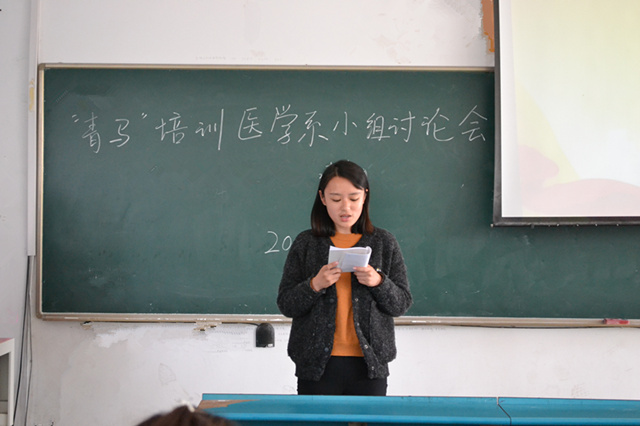 “青马”培训医学系小组讨论会
20